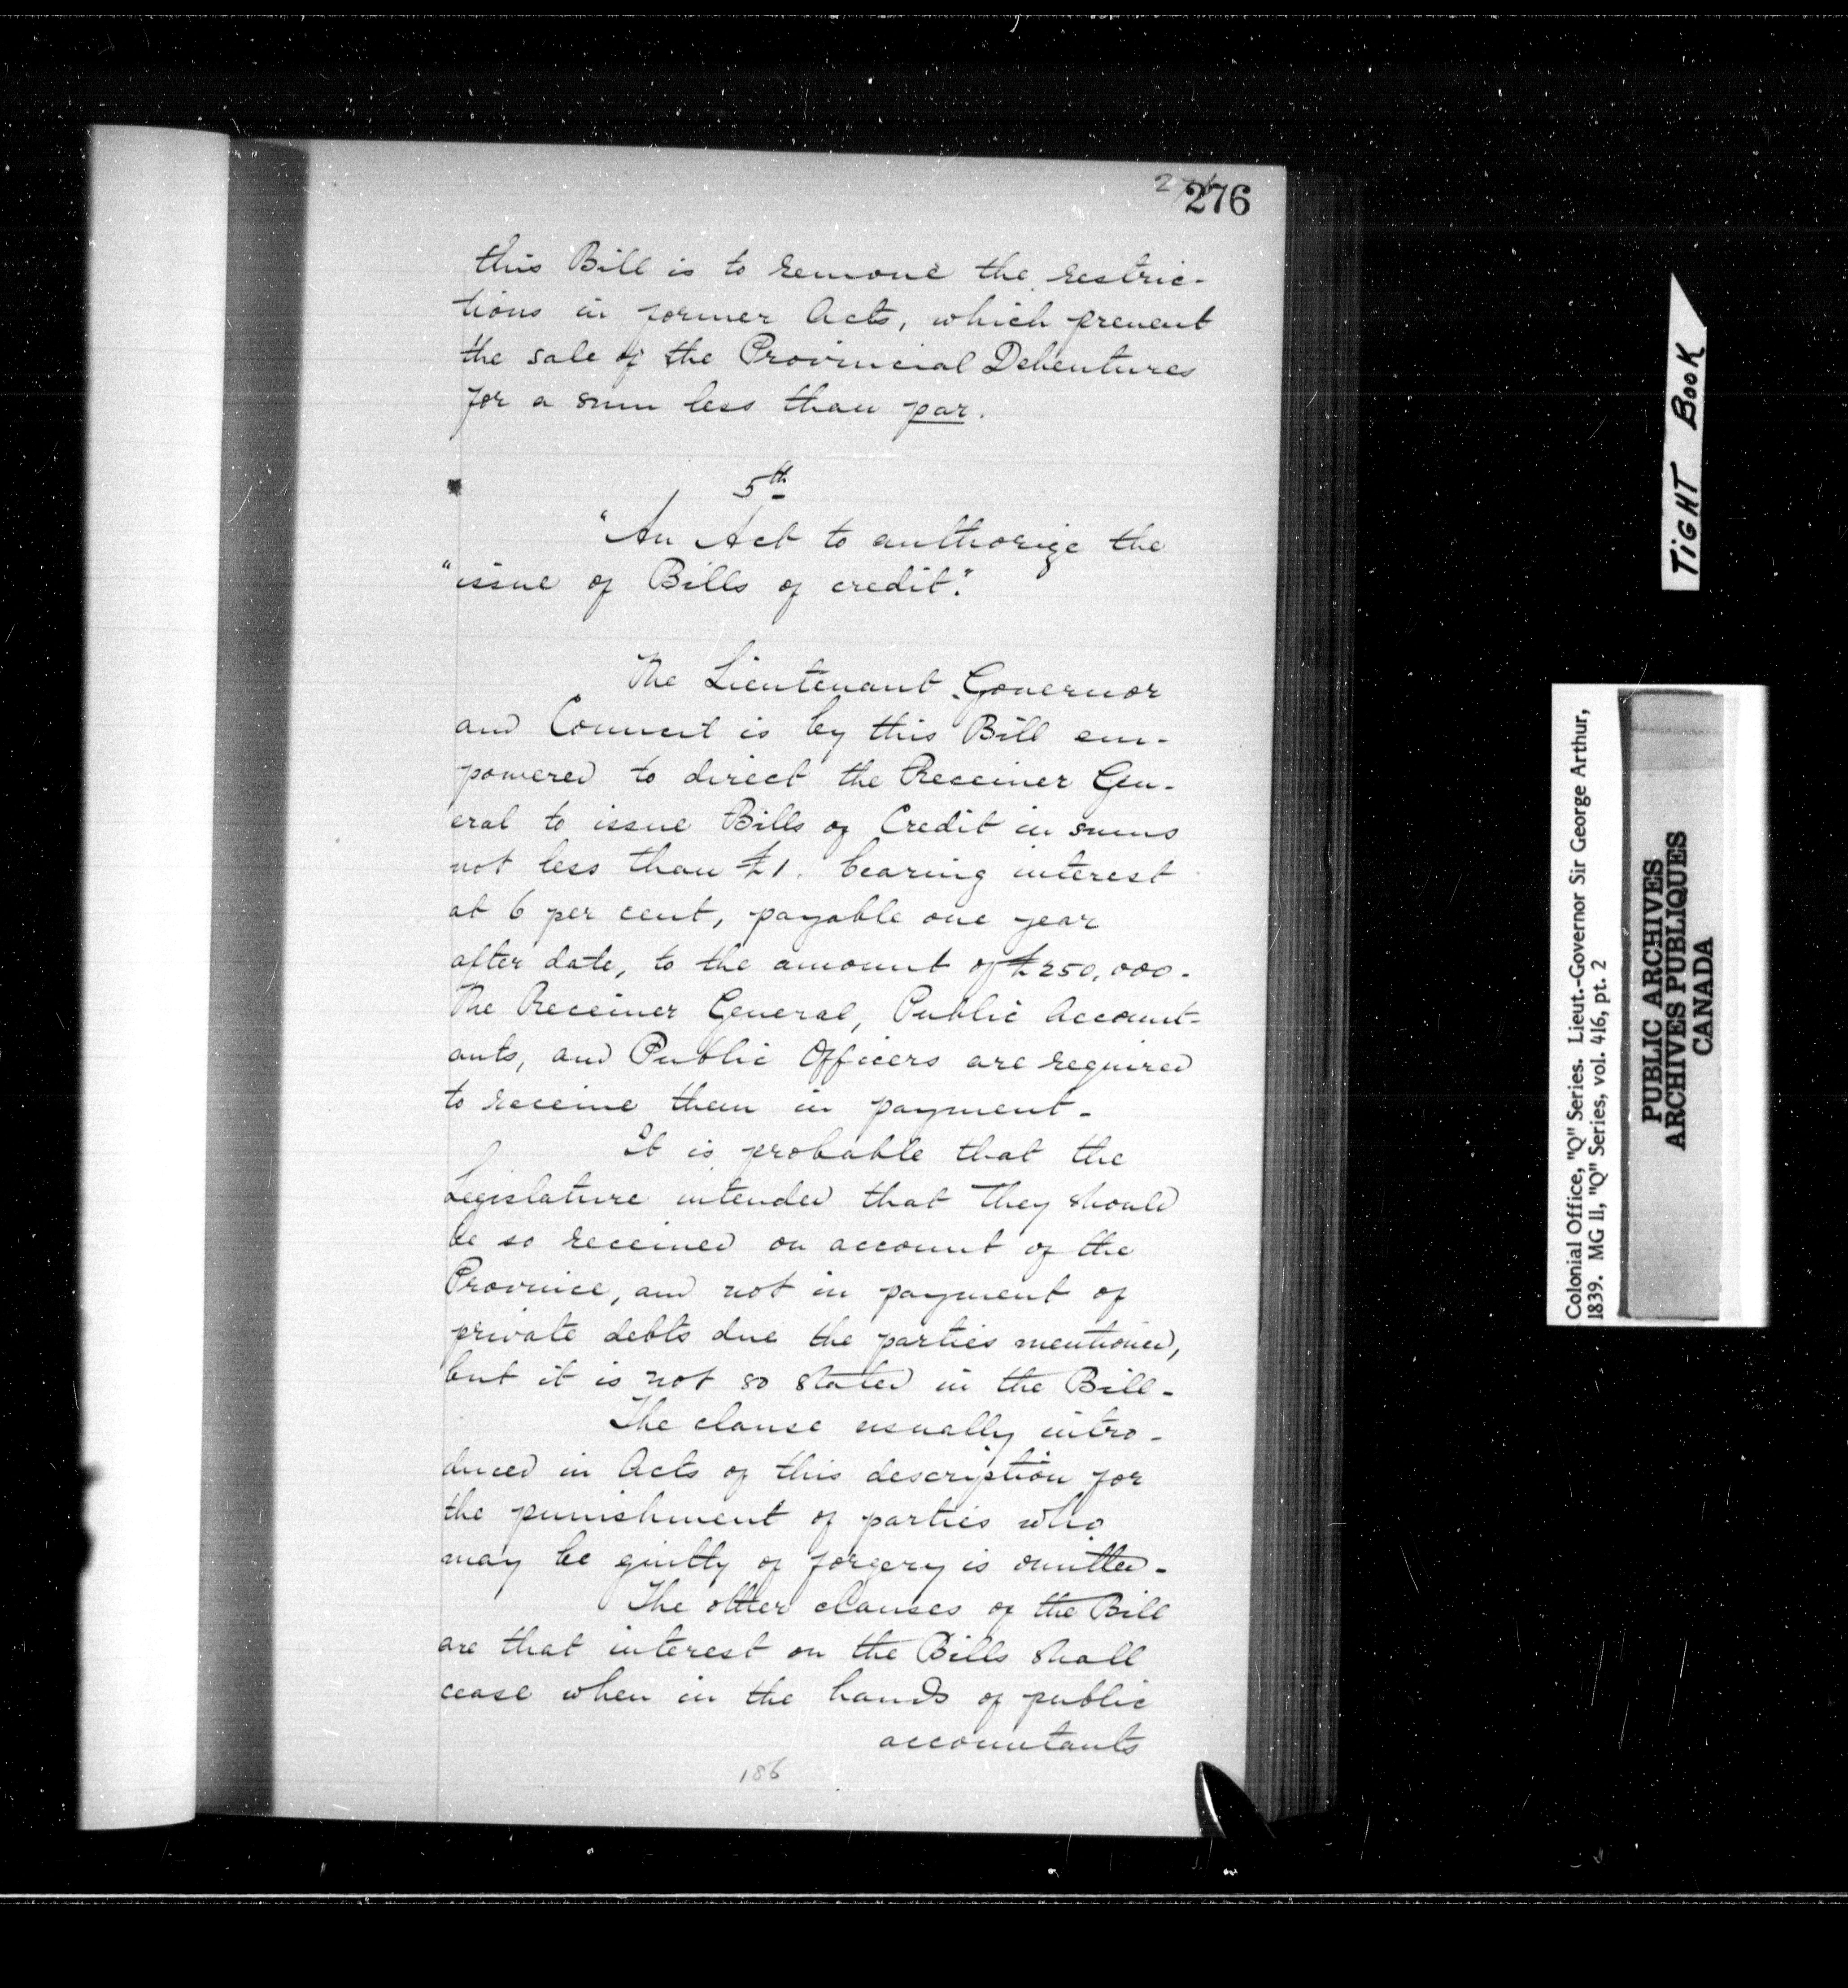 276
this Bill is to remove the restric-
tions in former Acts, which prevent
the sale of the Provincial Debentures
for a sum less than par.
5th
"An Act to authorize the
"issue of Bills of credit."
The Lieutenant Governor
and Council is by this Bill em-
powered to direct the Receiver Gen-
eral to issue Bills of Credit in sums
not less than £1. bearing interest
at 6 per cent, payable one year
after date, to the amount of £250,000.
The Receiver General, Public Account-
ants, and Public Officers are required
to receive them in payment-
It is probable that the
Legislature intended that they should
be so received on account of the
Province, and not in payment of
private debts due the parties mentioned,
but it is not so stated in the Bill-
The clause usually intro-
duced in Acts of this description for
the punishment of parties who
may be guilty of forgery is omitted-
The other clauses of the Bill
are that interest on the Bills shall
cease when in the hands of public
accountants
186
TIGHT BOOK
Colonial Office, "Q" Series. Lieut.-Governor Sir George Arthur,
1839. MG 11, "Q" Series, vol. 416, pt. 2
PUBLIC ARCHIVES
ARCHIVES PUBLIQUES
CANADA